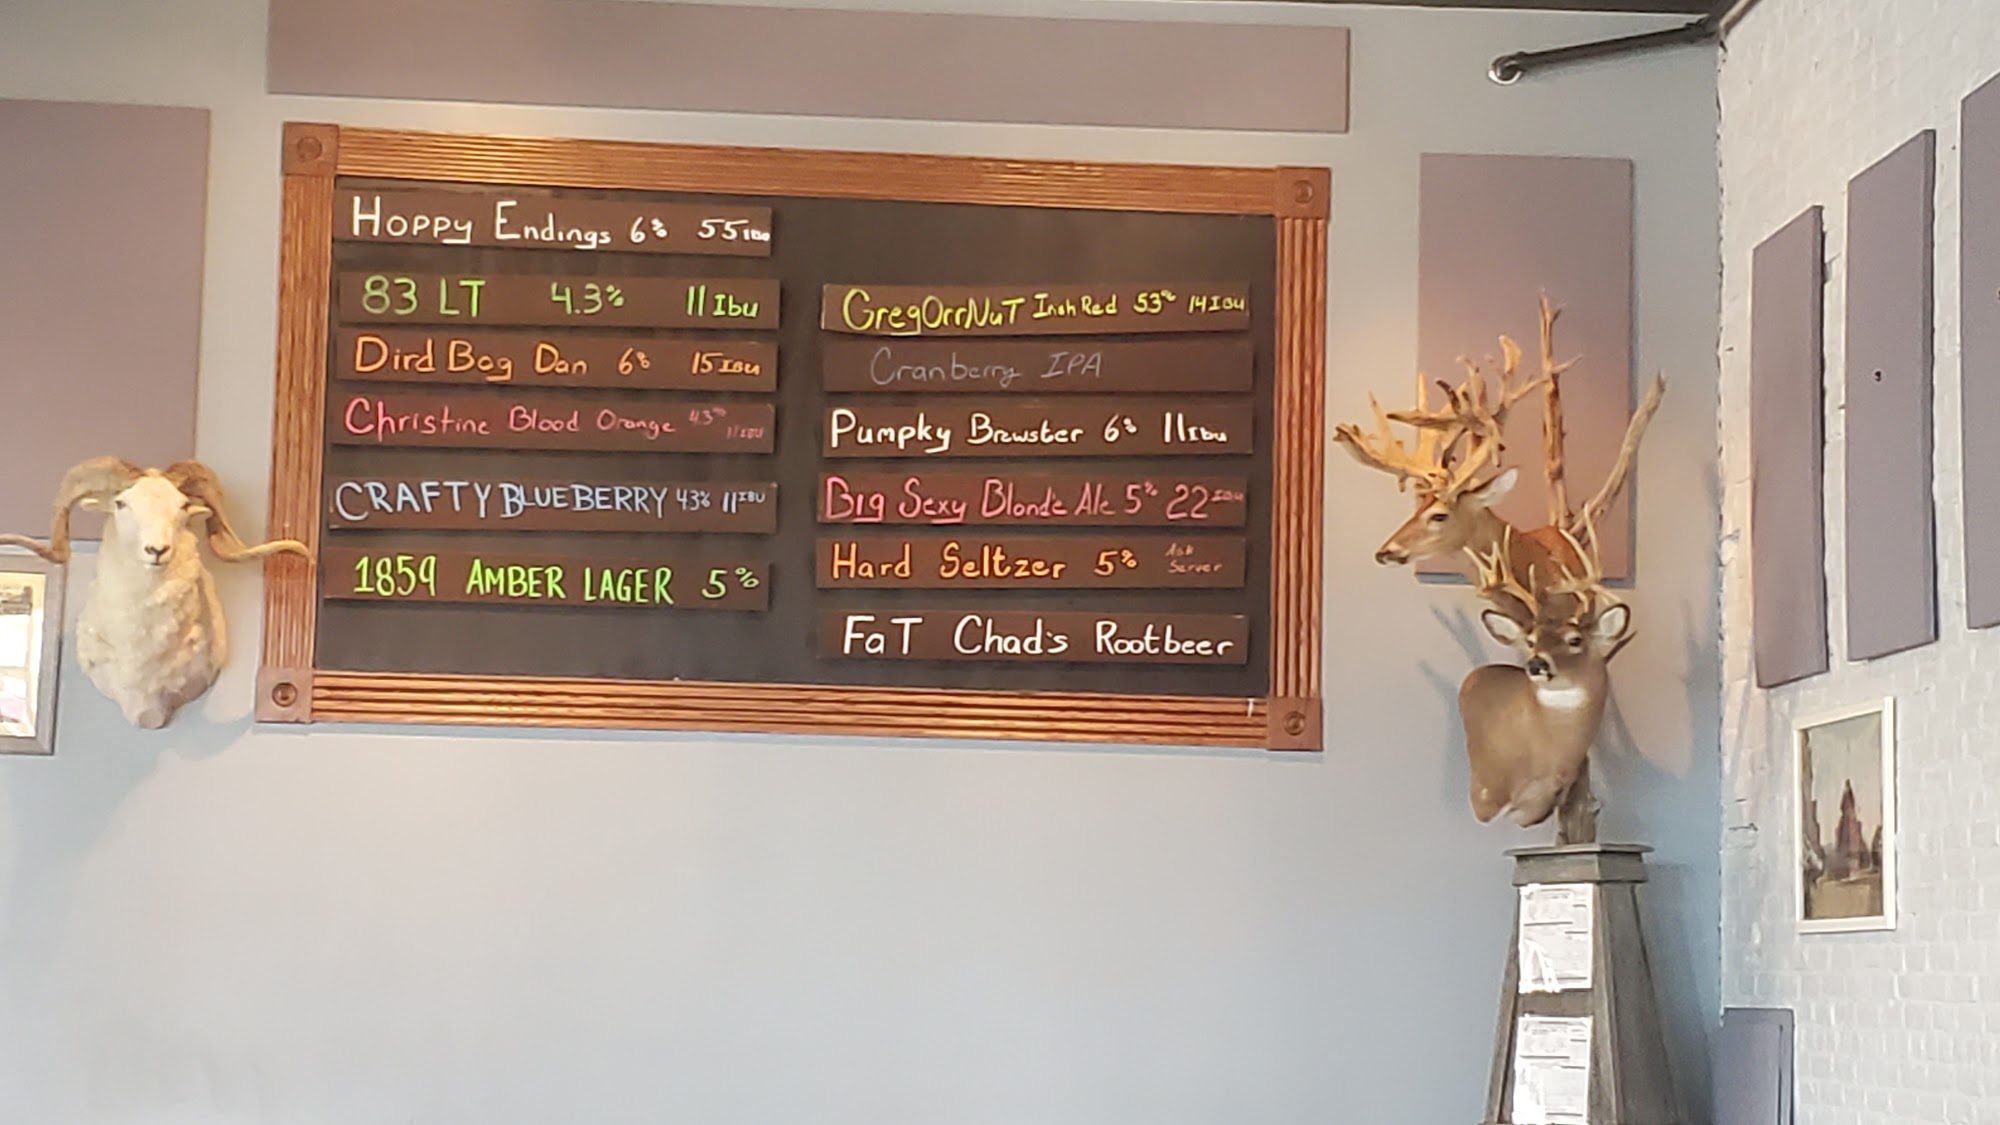 Hoppy Endings 6% 55 IBU
83 LT 4.3% 11 Ibu
Dird Bog Dan 6% 15 IBU
Christine Blood Orange 4.3% 11 IBU
CRAFTY BLUEBERRY 43% 11 IBU
1859 AMBER LAGER 5%
GregOrrNuT Irish Red 53% 14 IBU
Cranberry IPA
Pumpky Brewster 6% 11 Ibu
Big Sexy Blonde Ale 5% 22 IBU
Hard Seltzer 5% Ask Server
FaT Chad's Rootbeer